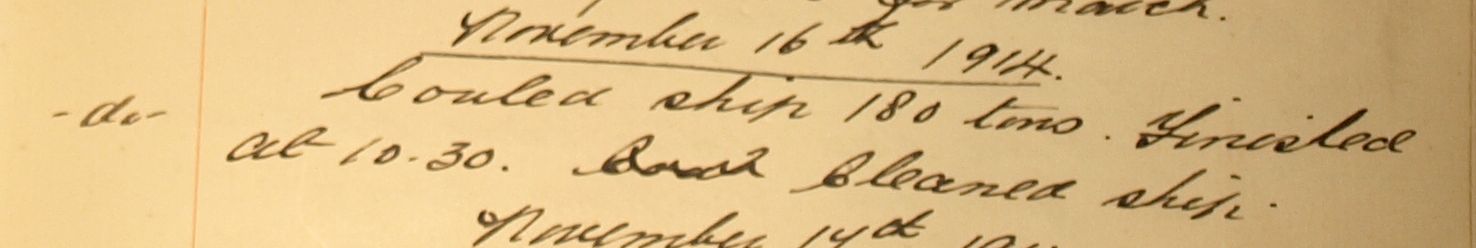 for March.
November 16th 1914.
-do- Coaled ship 180 tons. Finished
at 10.30. Cleaned ship.
November 17th